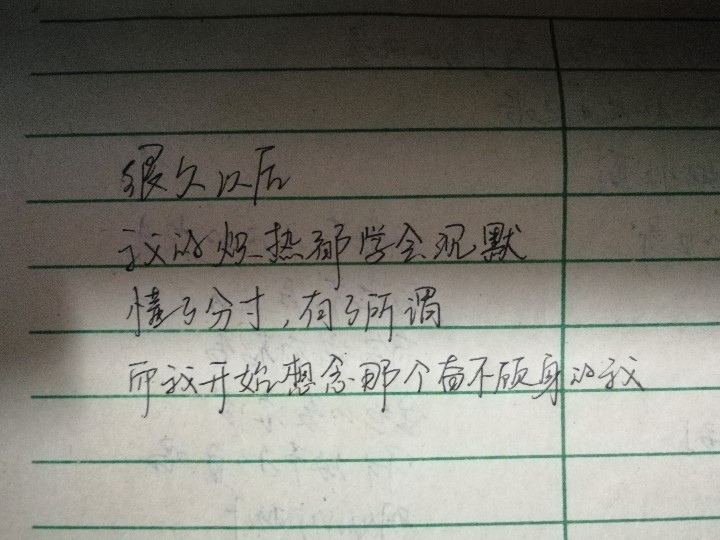 很久以后
我的炽热都学会沉默
懂了分寸,有了所谓
而我开始想念那个奋不顾身的我